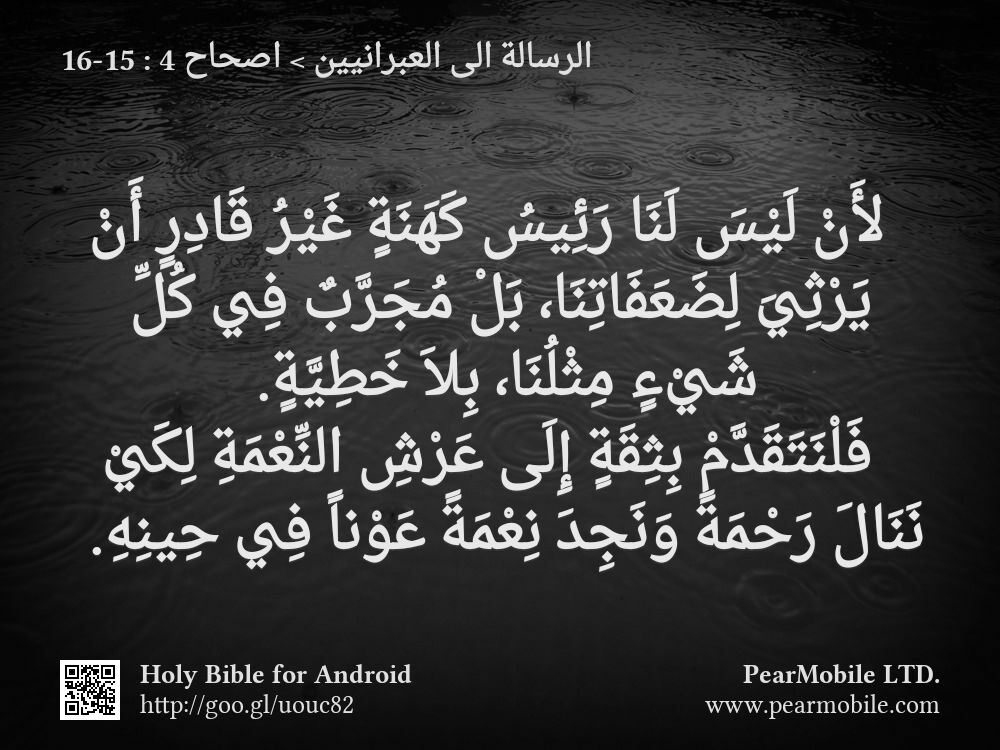 الرسالة الى العبرانيين > اصحاح 4 : 15-16
لأَنْ لَيْسَ لَنَا رَئِيسُ كَهَنَةٍ غَيْرُ قَادِرٍ أَنْ
يَرْثِيَ لِضَعَفَاتِنَا، بَلْ مُجَرَّبٌ فِي كُلِّ
شَيْءٍ مِثْلُنَا، بِلاَ خَطِيَّةٍ.
فَلْنَتَقَدَّمْ بِثِقَةٍ إِلَى عَرْشِ النِّعْمَةِ لِكَيْ
نَنَالَ رَحْمَةً وَنَجِدَ نِعْمَةً عَوْناً فِي حِينِهِ.
Holy Bible for Android
http://goo.gl/uouc82
PearMobile LTD.
www.pearmobile.com